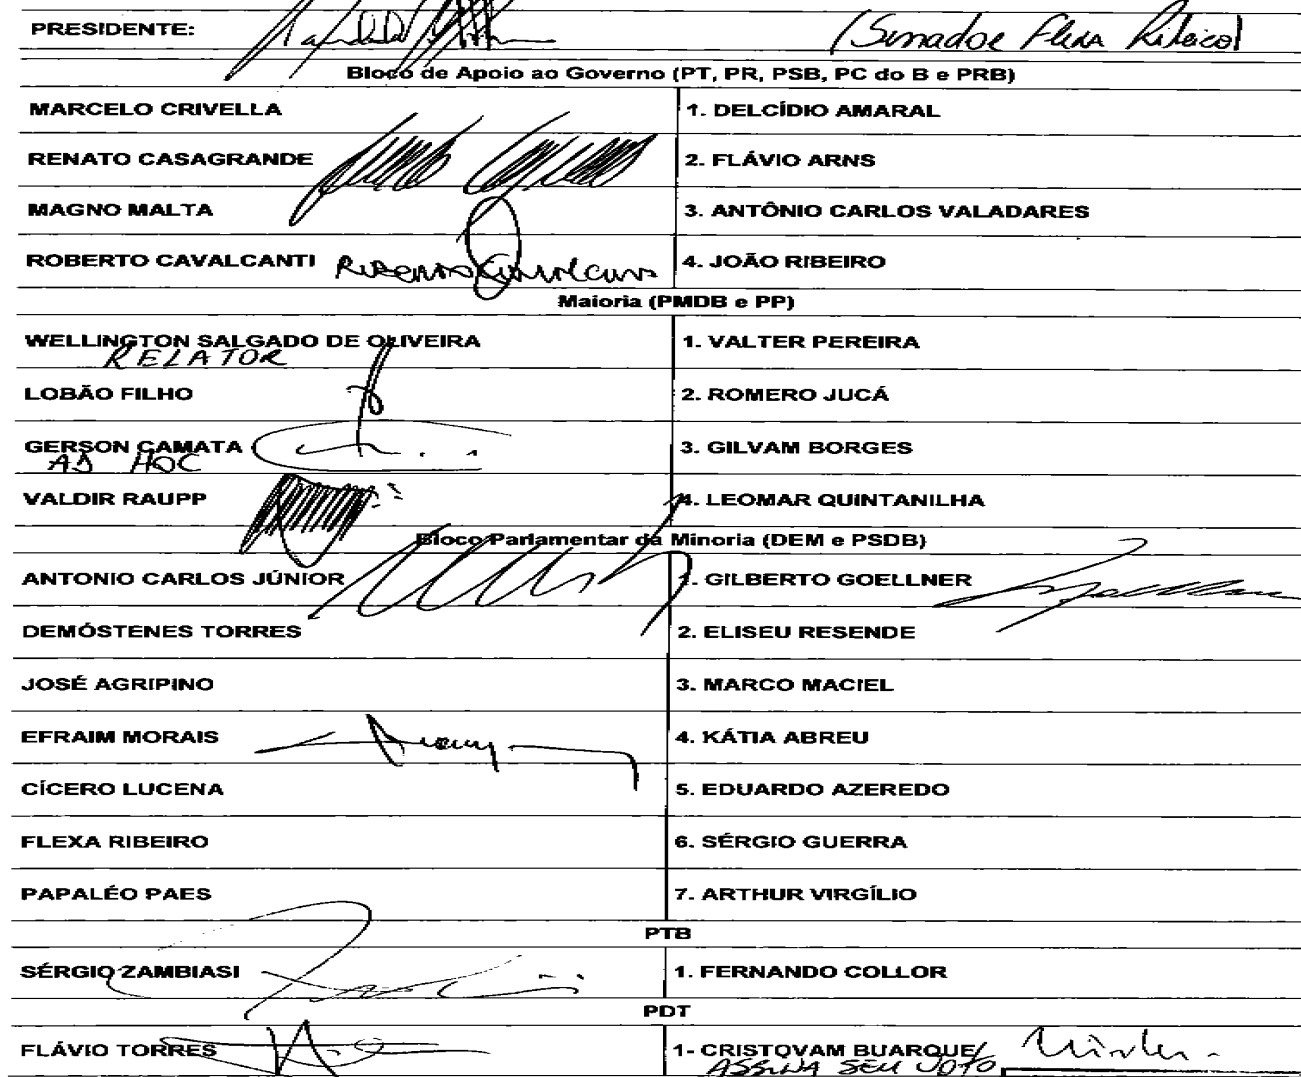 PRESIDENTE: (Senador Flexa Ribeiro)
Bloco de Apoio ao Governo (PT, PR, PSB, PC do B e PRB)
MARCELO CRIVELLA 1. DELCÍDIO AMARAL
RENATO CASAGRANDE 2. FLÁVIO ARNS
MAGNO MALTA 3. ANTÔNIO CARLOS VALADARES
ROBERTO CAVALCANTI 4. JOÃO RIBEIRO
Maioria (PMDB e PP)
WELLINGTON SALGADO DE OLIVEIRA 1. VALTER PEREIRA
RELATOR
LOBÃO FILHO 2. ROMERO JUCÁ
GERSON CAMATA 3. GILVAM BORGES
AD HOC
VALDIR RAUPP 4. LEOMAR QUINTANILHA
Bloco Parlamentar da Minoria (DEM e PSDB)
ANTONIO CARLOS JÚNIOR 1. GILBERTO GOELLNER
DEMÓSTENES TORRES 2. ELISEU RESENDE
JOSÉ AGRIPINO 3. MARCO MACIEL
EFRAIM MORAIS 4. KÁTIA ABREU
CÍCERO LUCENA 5. EDUARDO AZEREDO
FLEXA RIBEIRO 6. SÉRGIO GUERRA
PAPALÉO PAES 7. ARTHUR VIRGÍLIO
PTB
SÉRGIO ZAMBIASI 1. FERNANDO COLLOR
PDT
FLÁVIO TORRES 1- CRISTOVAM BUARQUE
ASSINA SEU VOTO